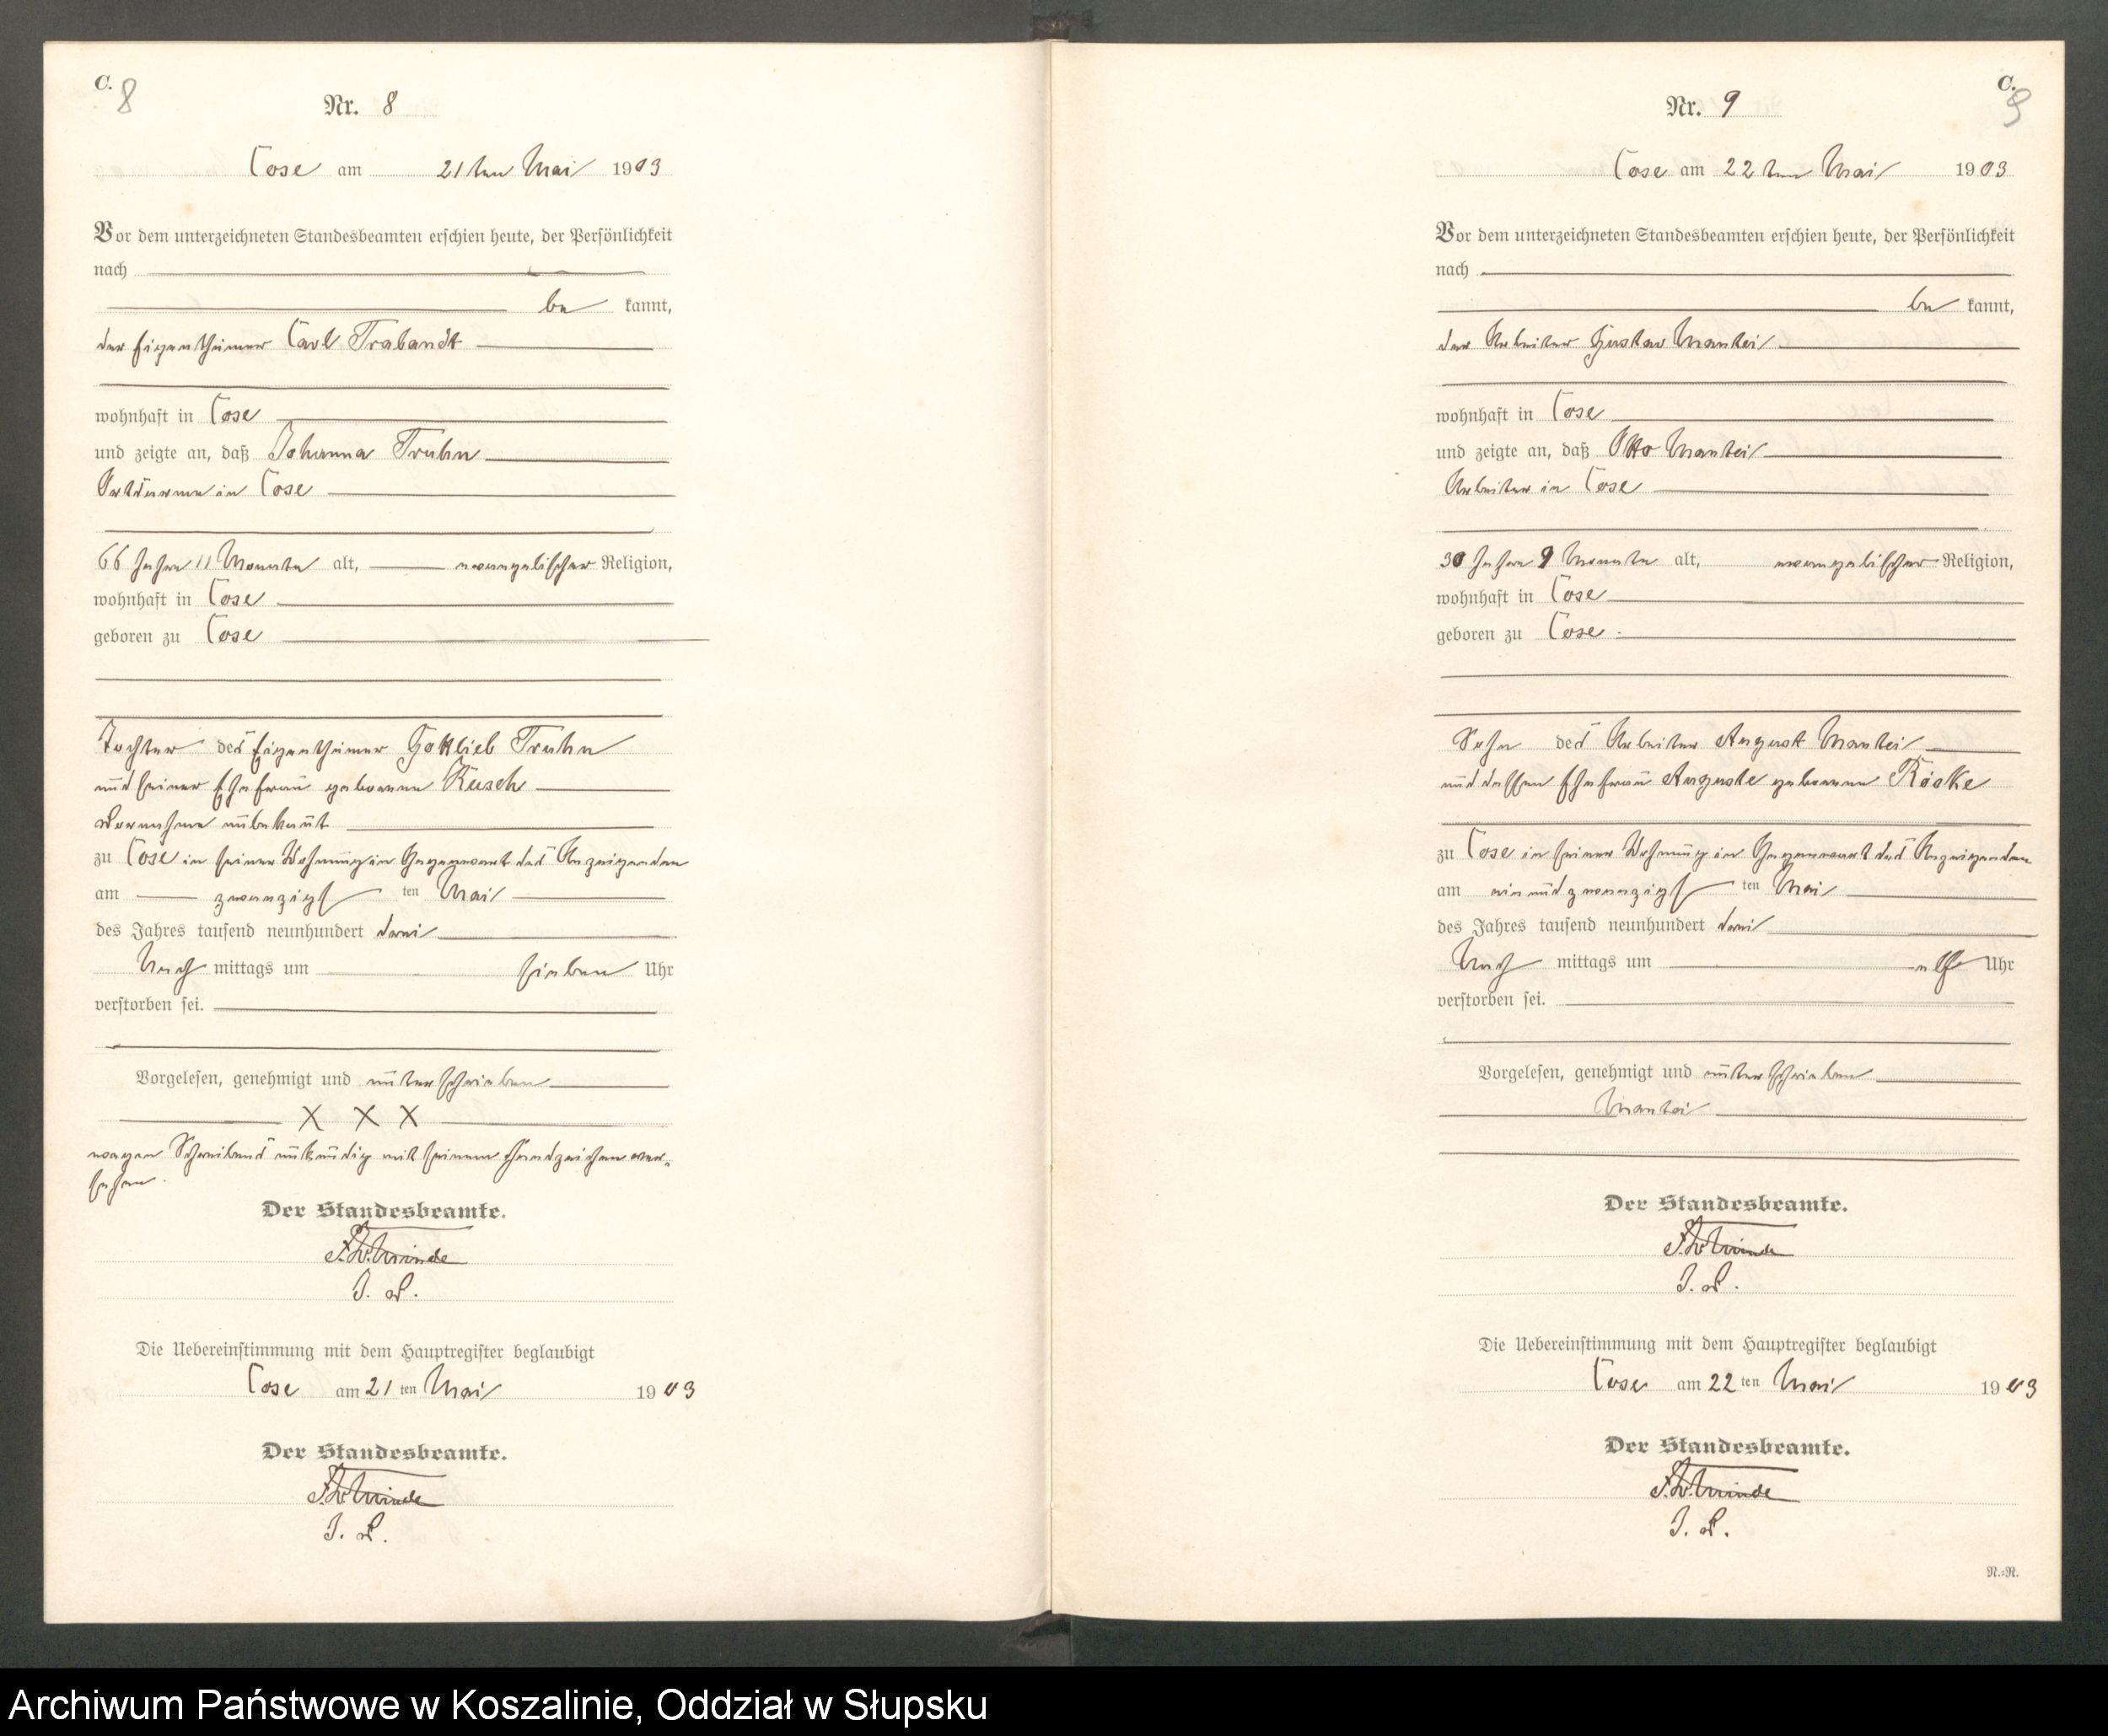 C.
8
Nr. 8
Cose am 21ten Mai 1903
Vor dem unterzeichneten Standesbeamten erschien heute, der Persönlichkeit
nach
be kannt,
der Eigenthümer Carl Trabandt
wohnhaft in Cose
und zeigte an, daß Johanna Truhn
Ortsarme in Cose
66 Jahre 11 Monate alt, evangelischer Religion,
wohnhaft in Cose
geboren zu Cose
Tochter des Eigenthümer Gottlieb Truhn
und seiner Ehefrau geborene Rusch
Vornahme unbekannt
zu Cose in seiner Wohnung in Gegenwart des Anzeigenden
am zwanzigs ten Mai
des Jahres tausend neunhundert drei
Nach mittags um sieben Uhr
verstorben sei.
Vorgelesen, genehmigt und unterschrieben
X X X
wegen Schreibens unkundig mit seinem Handzeichen ver-
sehen.
Der Standesbeamte.
F.W. Minde
I. V.
Die Uebereinstimmung mit dem Hauptregister beglaubigt
Cose am 21 ten Mai 1903
Der Standesbeamte.
F.W. Minde
I. V.
C.
9
Nr. 9
Cose am 22ten Mai 1903
Vor dem unterzeichneten Standesbeamten erschien heute, der Persönlichkeit
nach
be kannt,
der Arbeiter Gustav Mantei
wohnhaft in Cose
und zeigte an, daß Otto Mantei
Arbeiter in Cose
30 Jahre 9 Monate alt, evangelischer Religion,
wohnhaft in Cose
geboren zu Cose.
Sohn des Arbeiter August Mantei
und dessen Ehefrau Auguste geborene Röske
zu Cose in seiner Wohnung in Gegenwart des Anzeigenden
am einundzwanzigs ten Mai
des Jahres tausend neunhundert drei
Nach mittags um elf Uhr
verstorben sei.
Vorgelesen, genehmigt und unterschrieben
Mantei
Der Standesbeamte.
F.W. Minde
I. V.
Die Uebereinstimmung mit dem Hauptregister beglaubigt
Cose am 22 ten Mai 1903
Der Standesbeamte.
F.W. Minde
I. V.
N.=N.
Archiwum Państwowe w Koszalinie, Oddział w Słupsku